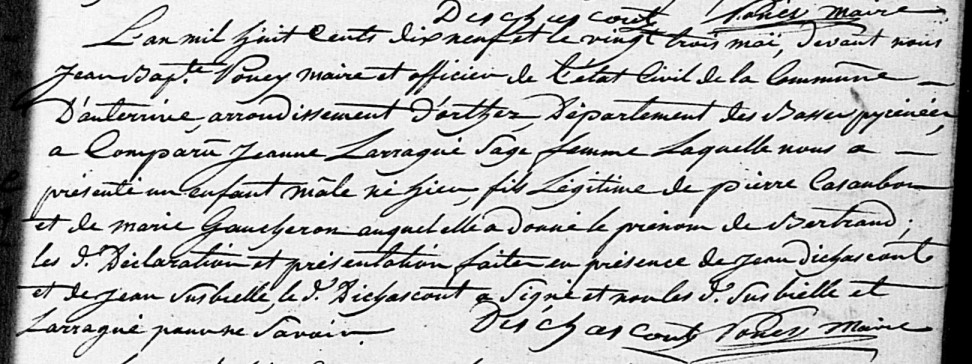 Deschascout Poney maire
L'an mil huit Cents dix neuf et le vingt trois mai, devant nous
Jean Bapte. Poney maire et officier de l'état Civil de la Commune
D'auterrive, arrondissement d'orthez, Département des Basses pyrénées,
a Comparû Jeanne Larragué Sage femme Laquelle nous a
présenté un enfant mâle né hier, fils Légitime de pierre Casaubon
et de marie Gaucheron auquel elle a donné le prénom de Bertrand;
les d. Déclaration et présentation faites en présence de jean dichascout
et de jean Susbielle, le d. Dichascout a Signé et non les d. Susbielle et
Larragué pour ne Savoir. Deschascout Poney maire